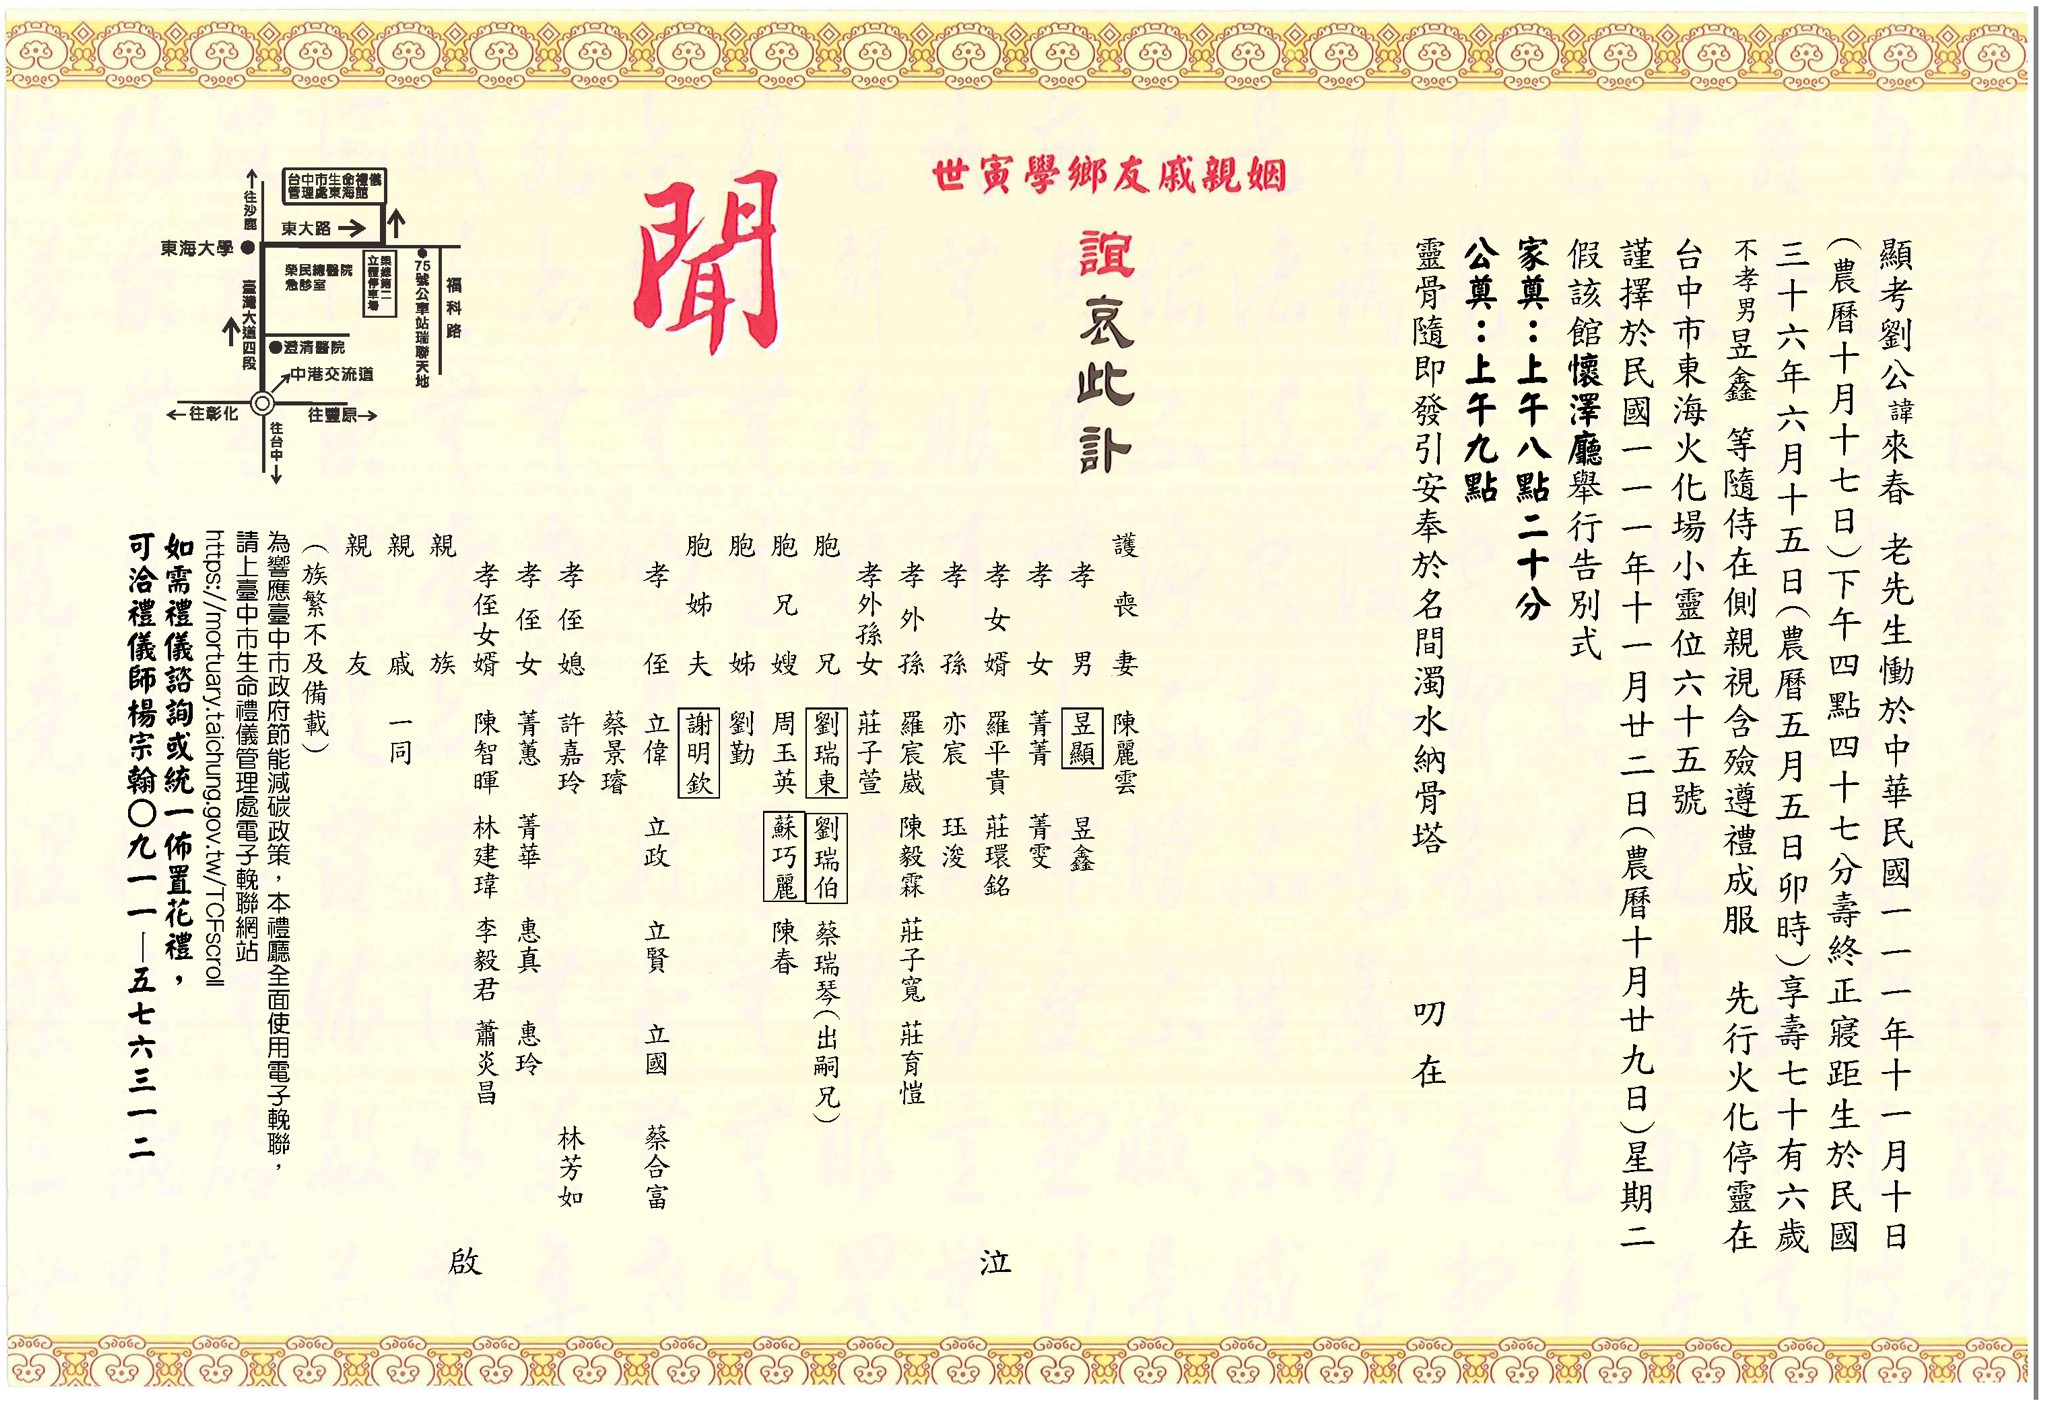 顯考劉公諱來春 老先生慟於中華民國一一一年十一月十日
(農曆十月十七日)下午四點四十七分壽終正寢距生於民國
三十六年六月十五日(農曆五月五日卯時)享壽七十有六歲
不孝男昱鑫 等隨侍在側親視含殮遵禮成服 先行火化停靈在
台中市東海火化場小靈位六十五號
謹擇於民國一一一年十一月廿二日(農曆十月廿九日)星期二
假該館懷澤廳舉行告別式
家奠：上午八點二十分
公奠：上午九點
靈骨隨即發引安奉於名間濁水納骨塔 叨在
世寅學鄉友戚親姻
誼
哀此訃
聞
護喪妻 陳麗雲
孝男 昱顯 昱鑫
孝女 菁菁 菁雯
孝女婿 羅平貴 莊環銘
孝孫 亦宸 珏浚
孝外孫 羅宸崴 陳毅霖 莊子寬 莊育愷
孝外孫女 莊子萱
胞兄 劉瑞東 劉瑞伯 蔡瑞琴(出嗣兄)
胞兄嫂 周玉英 蘇巧麗 陳春
胞姊 劉勤
胞姊夫 謝明欽
孝侄 立偉 立政 立賢 立國 蔡合富
蔡景璿
孝侄媳 許嘉玲 林芳如
孝侄女 菁蕙 菁華 惠真 惠玲
孝侄女婿 陳智暉 林建瑋 李毅君 蕭炎昌
親族
親戚 一同
親友
泣
啟
(族繁不及備載)
為響應臺中市政府節能減碳政策，本禮廳全面使用電子輓聯，
請上臺中市生命禮儀管理處電子輓聯網站
https://mortuary.taichung.gov.tw/TCFscroll
如需禮儀諮詢或統一佈置花禮，
可洽禮儀師楊宗翰〇九一一－五七六三一二
台中市生命禮儀
管理處東海館
往沙鹿
東大路
東海大學
榮民總醫院
急診室
榮總第二
立體停車場
75號公車站瑞聯天地
福科路
臺灣大道四段
澄清醫院
中港交流道
往彰化
往豐原
往台中